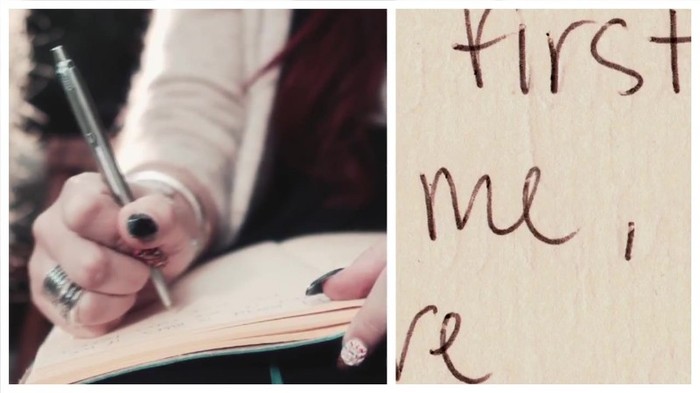 first
me,
re